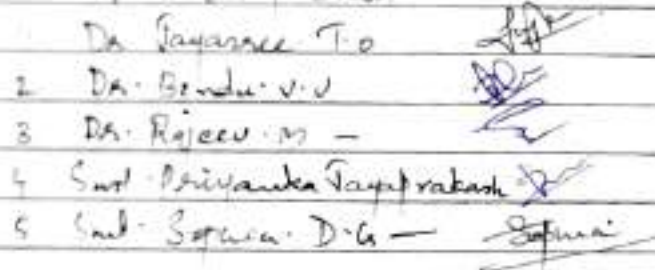 Dr Jayasree T.O
2 Dr. Bindu. V.V
3 Dr. Rajeev. M –
4 Smt. Priyanka Jayaprakash
5 Smt. D.G –